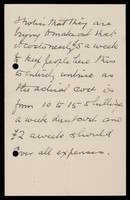 that they are
trying to make out that
it costs nearly £5 a week
to keep people here this
is entirely untrue as
the actual cost is
from 10 to 15 shillings
a week and
£2 a week should
cover all expenses.